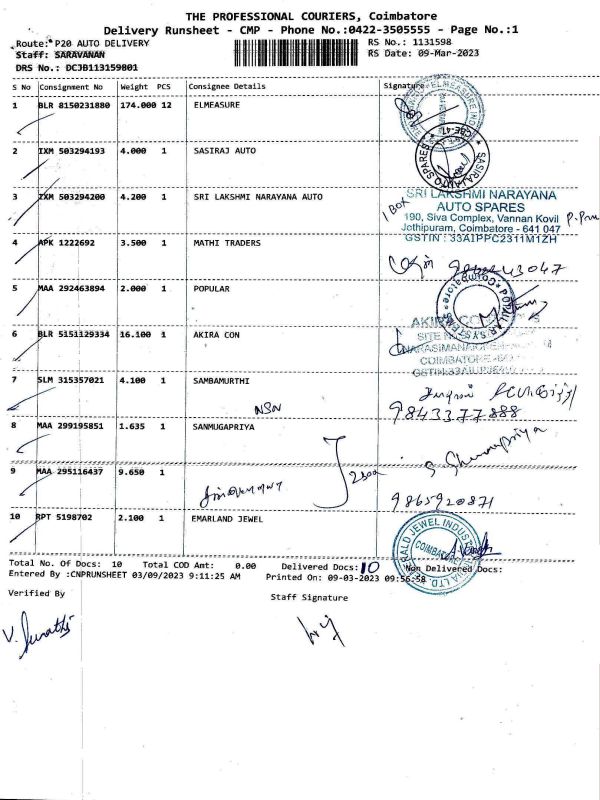 THE PROFESSIONAL COURIERS, Coimbatore
Delivery Runsheet - CMP - Phone No.:0422-3505555 - Page No.:1
Route: P20 AUTO DELIVERY
RS No.: 1131598
Staff: SARAVANAN
RS Date: 09-Mar-2023
DRS No.: DCJB113159801
S No Consignment No Weight PCS Consignee Details Signature
1 BLR 8150231880 174.000 12 ELMEASURE
2 IXM 503294193 4.000 1 SASIRAJ AUTO
SASIRAJ AUTO SPARES
3 IXM 503294200 4.200 1 SRI LAKSHMI NARAYANA AUTO
1 Box
SRI LAKSHMI NARAYANA
AUTO SPARES
190, Siva Complex, Vannan Kovil
Jothipuram, Coimbatore - 641 047
GSTIN : 33AIPPC2311M1ZH
4 APK 1222692 3.500 1 MATHI TRADERS
5 MAA 292463894 2.000 1 POPULAR
POPULAR SYSTEMS Coimbatore
6 BLR 5151129334 16.100 1 AKIRA CON
7 SLM 315357021 4.100 1 SAMBAMURTHI
9843377888
8 MAA 299195851 1.635 1 SANMUGAPRIYA
S. Shanmugapriya
9 MAA 295116437 9.650 1
9865920871
10 RPT 5198702 2.100 1 EMARLAND JEWEL
EMERALD JEWEL INDUSTRY INDIA LTD.
COIMBATORE
Total No. Of Docs: 10 Total COD Amt: 0.00 Delivered Docs: 10 Non Delivered Docs:
Entered By :CNPRUNSHEET 03/09/2023 9:11:25 AM Printed On: 09-03-2023 09:56:58
Verified By
Staff Signature